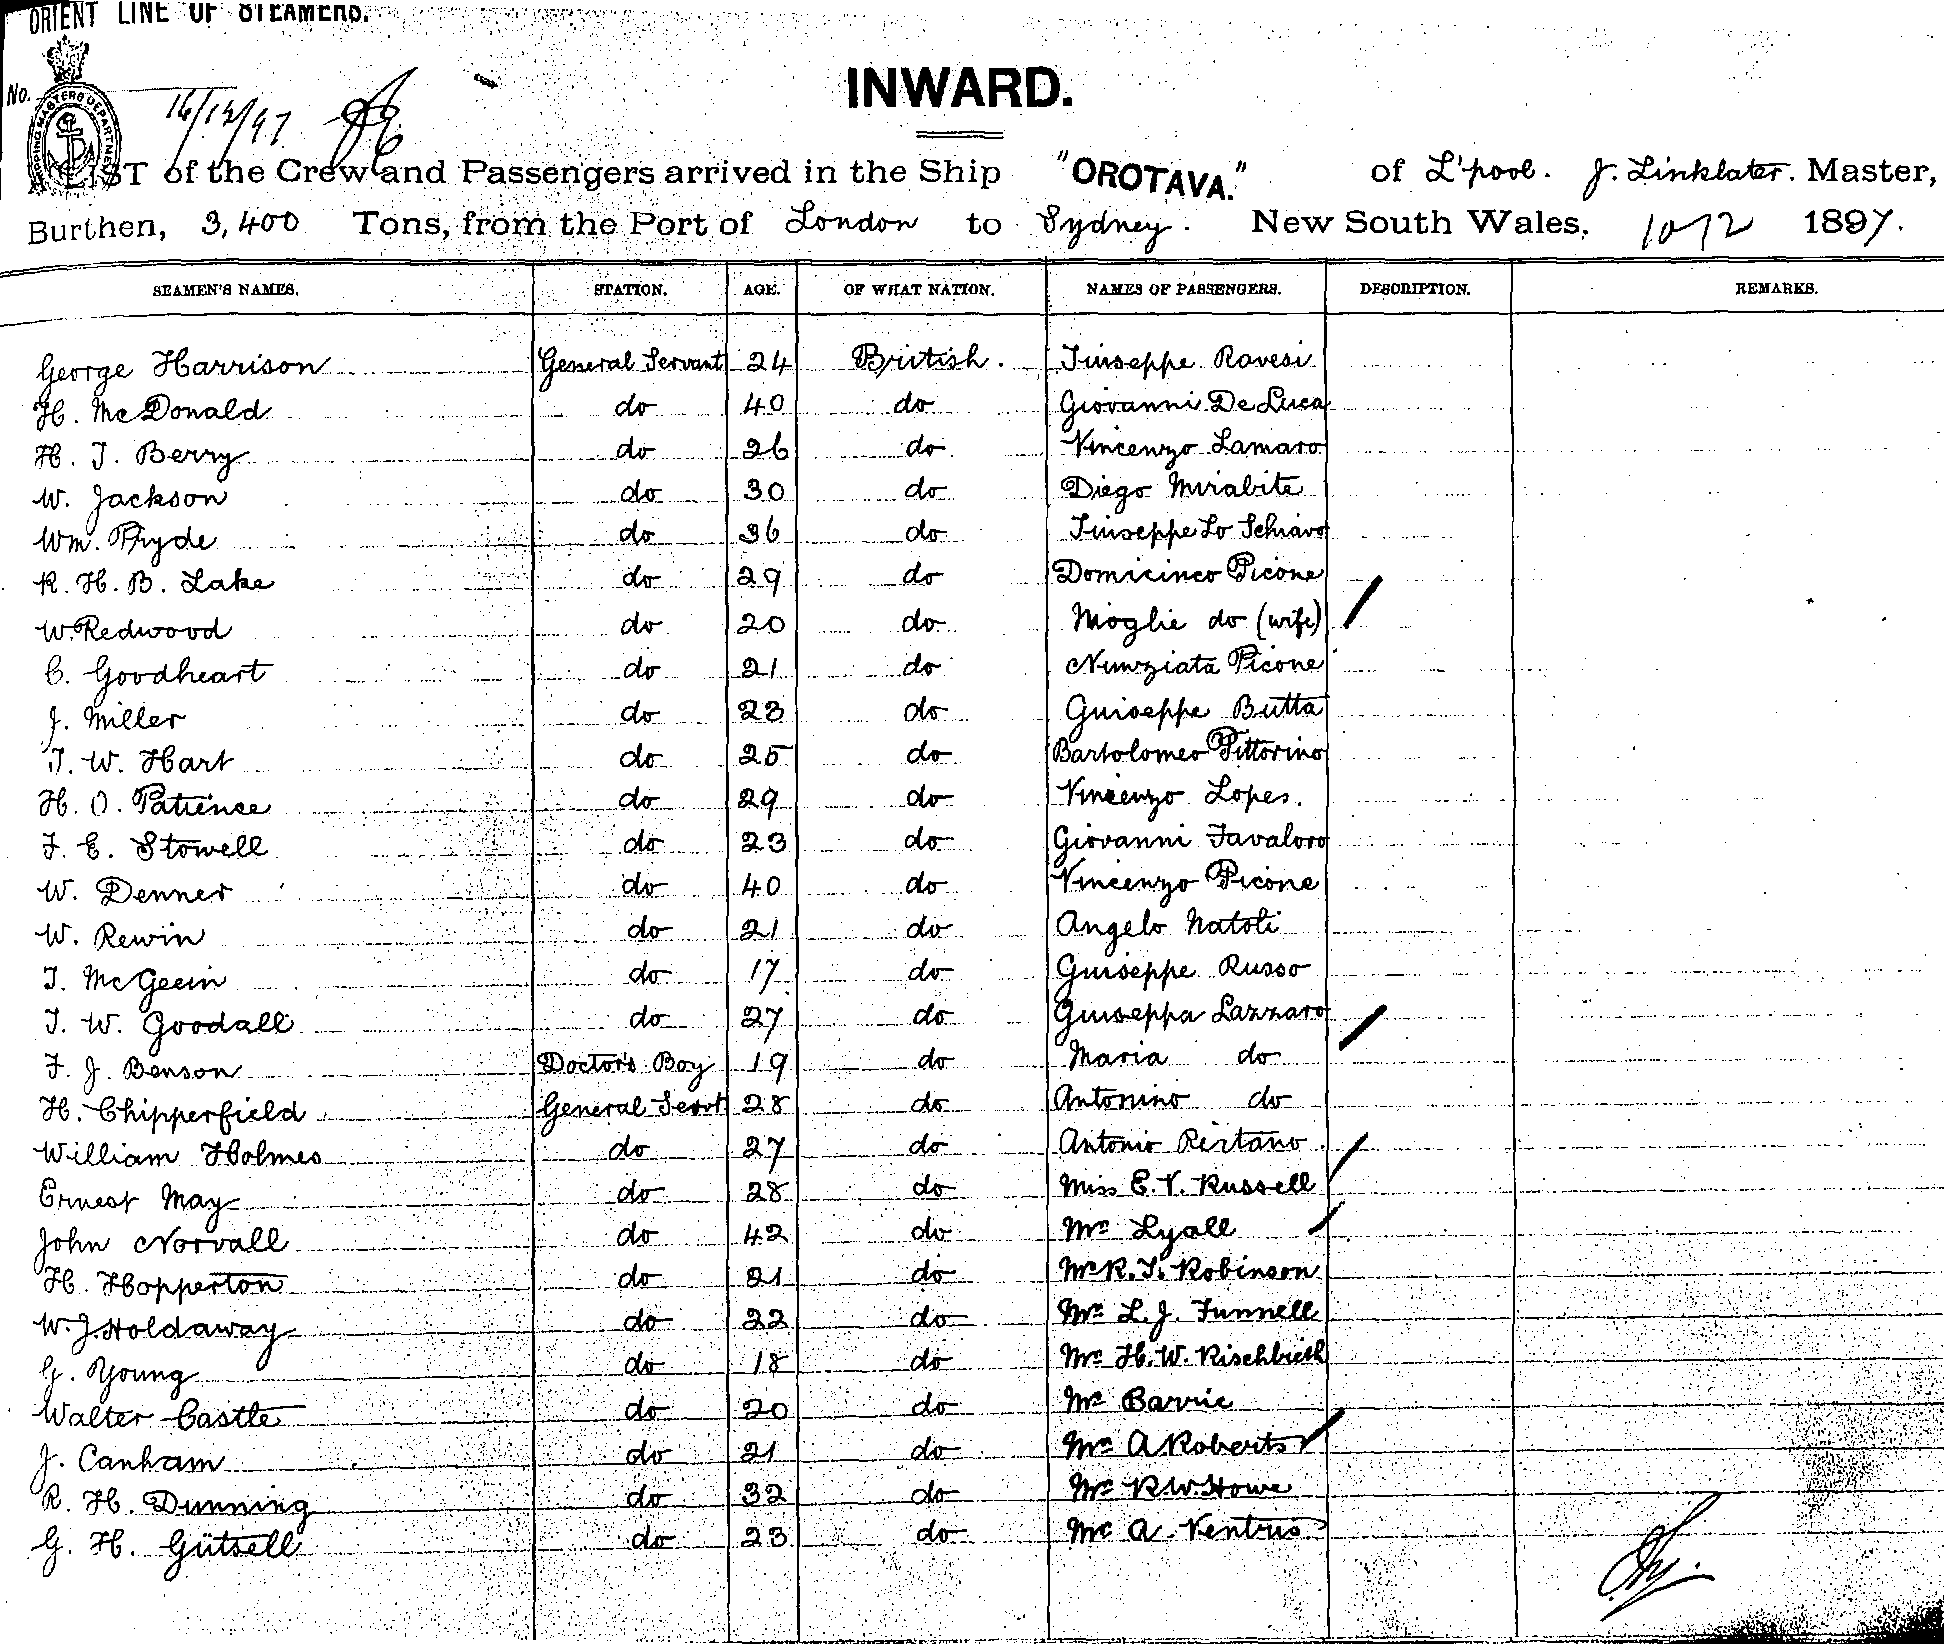 ORIENT LINE OF STEAMERS.
No.
SHIPPING MASTERS DEPARTMENT
16/12/97
INWARD.
A LIST of the Crew and Passengers arrived in the Ship "OROTAVA." of L'pool. J. Linklater. Master,
Burthen, 3,400 Tons, from the Port of London to Sydney. New South Wales, 1897.
SEAMEN'S NAMES. STATION. AGE. OF WHAT NATION. NAMES OF PASSENGERS. DESCRIPTION. REMARKS.
George Harrison General Servant 24 British. Giuseppe Ravesi
H. McDonald do 40 do Giovanni De Luca
H. J. Berry do 26 do Vincenzo Lamaro
W. Jackson do 30 do Diego Mirabite
Wm. Pryde do 36 do Giuseppe Lo Schiavo
R. H. B. Lake do 29 do Picone
W. Redwood do 20 do Moglie do (wife)
C. Goodheart do 21 do Nunziata Picone
J. Miller do 23 do Guiseppe Butta
T. W. Hart do 25 do Bartolomeo Pittorino
H. O. Patience do 29 do Vincenzo Lopes.
F. E. Stowell do 23 do Giovanni Favaloro
W. Denner do 40 do Vincenzo Picone
W. Rewin do 21 do Angelo Natoli
T. McGeein do 17 do Guiseppe Russo
T. W. Goodall do 27 do Guiseppa Lazzaro
F. J. Benson Doctor's Boy 19 do Maria do
H. Chipperfield General Servt 28 do Antonino do
William Holmes do 27 do Antonio
Ernest May do 28 do Miss E. V. Russell
John Norvall do 42 do Mr Lyall
H. Hopperton do 21 do Mr R. T. Robinson
W. J. Holdaway do 22 do Mr L. J. Funnell
G. Young do 18 do Mr H. W. Rischbieth
Walter Castle do 20 do Mr Barrie
J. Canham do 21 do A Roberts
R. H. Dunning do 32 do Mr R. W. Howe
G. H. Gutsell do 23 do Mr A. Ventris